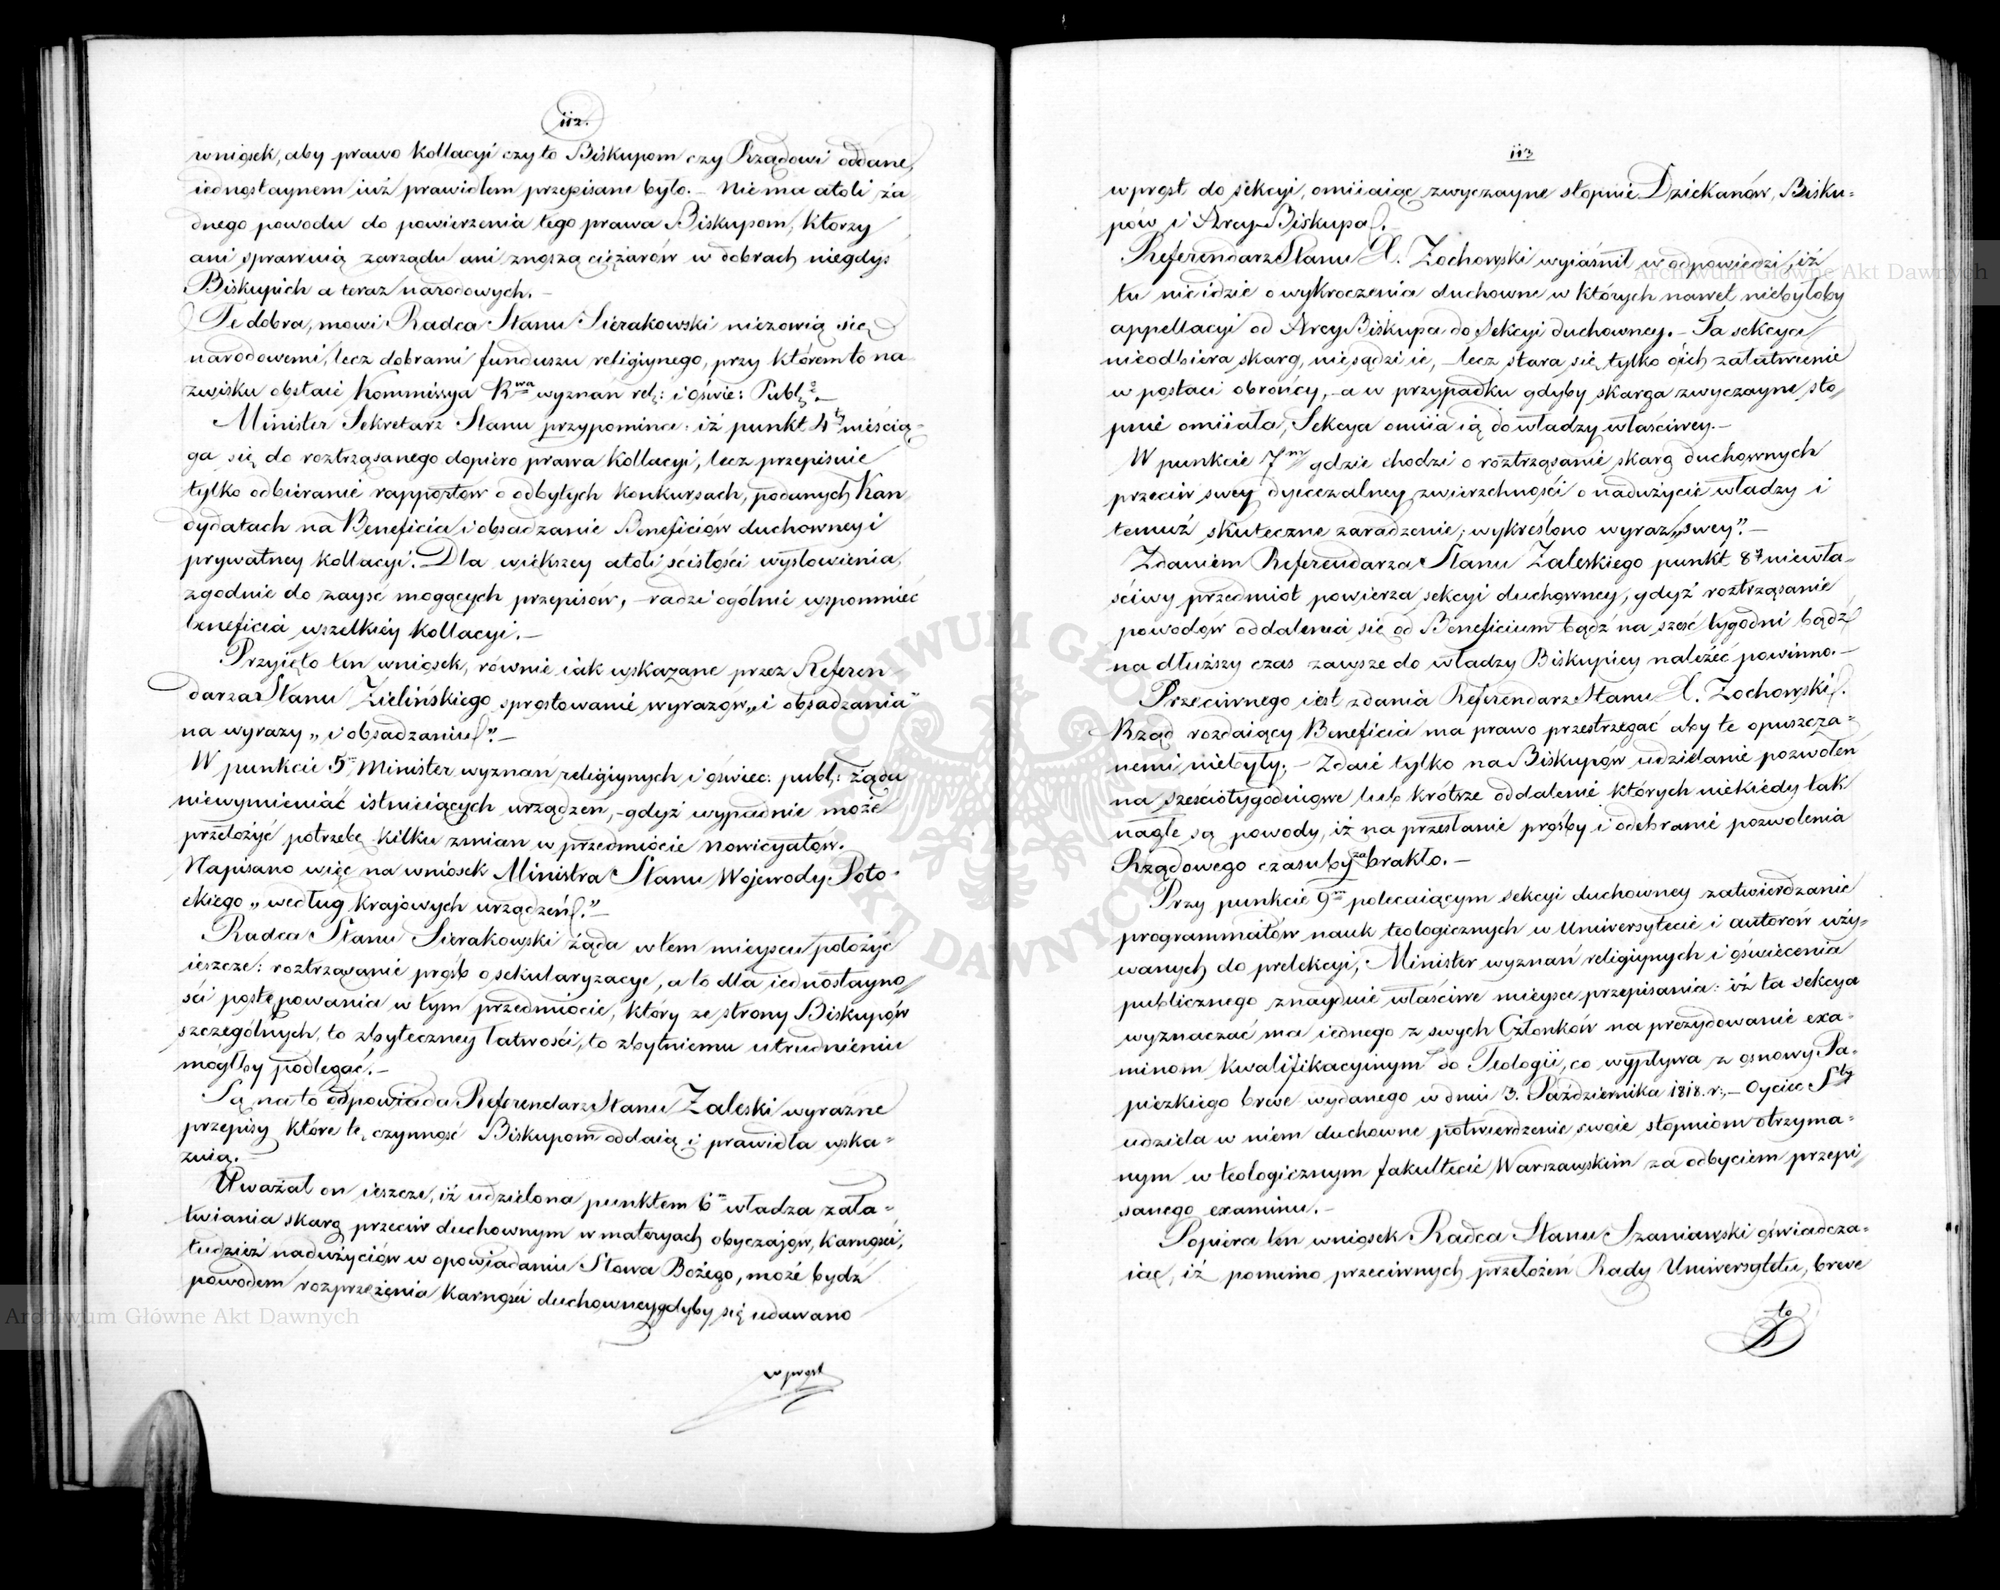 112.
wniosek, aby prawo kollacyi czy to Biskupom czy Rządowi oddane,
iednostaynem iuż prawidłem przepisane było. – Nie ma atoli ża-
dnego powodu do powierzenia tego prawa Biskupom, którzy
ani sprawuią zarządu ani znoszą ciężarów w dobrach niegdyś
Biskupich a teraz narodowych. –
Te dobra, mowi Radca Stanu Sierakowski niezowią się
narodowemi, lecz dobrami funduszu religiynego, przy którem to na-
zwisku obstaie Kommissya R^wa wyznań rel: i oświe: Publ: –
Minister Sekretarz Stanu przypomina: iż punkt 4^ty nieścią-
ga się do roztrząsanego dopiero prawa Kollacyi, lecz przepisuie
tylko odbieranie rapportów o odbytych konkursach, podanych Kan-
dydatach na Beneficia i obsadzanie Beneficiów duchowney i
prywatney kollacyi. Dla większey atoli ścisłości wysłowienia,
zgodnie do zayść mogących przepisów, – radzi ogólnie wspomnieć
beneficia wszelkiéy kollacyi. –
Przyięto ten wniosek, równie iak wskazane przez Referen-
darza Stanu Zielińskiego sprostowanie wyrazów „i obsadzania"
na wyrazy „i obsadzaniu". –
W punkcie 5^m Minister wyznań religiynych i oświec: publ: żąda
niewymieniać istnieiących urządzeń, – gdyż wypadnie może
przełożyć potrzebę kilku zmian w przedmiocie nowicyatów.
Napisano więc na wniosek Ministra Stanu Wojewody Poto-
ckiego „według krajowych urządzeń." –
Radca Stanu Sierakowski żąda w tem mieyscu położyć
ieszcze: roztrząsanie próśb o sekularyzacye, a to dla iednostayno-
ści postępowania w tym przedmiocie, który ze strony Biskupów
szczególnych, to zbyteczney łatwości, to zbytniemu utrudnieniu
mógłby podlegać. –
Są na to odpowiada Referendarz Stanu Zaleski wyraźne
przepisy które tę czynność Biskupom oddaią i prawidła wska-
zuią. –
Uważał on ieszcze, iż udzielona punktem 6^m władza zała-
twiania skarg przeciw duchownym w materyach obyczajów, karności,
tudzież nadużyciów w opowiadaniu Słowa Bożego, może bydź
powodem rozprzężenia karności duchowney gdyby się udawano
wprost
113
wprost do sekcyi, omiiaiąc zwyczayne stopnie Dziekanów, Bisku-
pów i Arcy-Biskupa. –
Referendarz Stanu X. Zochowski wyiaśnił w odpowiedzi, iż
tu nie idzie o wykroczenia duchowne w których nawet niebyłoby
appellacyi od Arcy Biskupa do Sekcyi duchowney. – Ta sekcya
nieodbiera skarg, nie sądzi ie, – lecz stara się tylko o ich załatwienie
w postaci obrońcy, – a w przypadku gdyby skarga zwyczayne sto-
pnie omiiała, Sekcya omiia ią do władzy właściwey. –
W punkcie 7^m gdzie chodzi o roztrząsanie skarg duchownych
przeciw swey dyecezalney zwierzchności o nadużycie władzy i
temuż skuteczne zaradzenie; wykreślono wyraz „swey". –
Zdaniem Referendarza Stanu Zaleskiego punkt 8^y niewła-
ściwy przedmiot powierza sekcyi duchowney, gdyż roztrząsanie
powodów oddalenia się od Beneficium bądź na sześć tygodni bądź
na dłuższy czas zawsze do władzy Biskupiey należeć powinno. –
Przeciwnego iest zdania Referendarz Stanu X. Zochowski.
Rząd rozdaiący Beneficia ma prawo przestrzegać aby te opuszcza-
nemi niebyły; – Zdaie tylko na Biskupów udzielanie pozwoleń
na sześciotygodniowe lub krótsze oddalenie których niekiedy tak
nagłe są powody, iż na przesłanie prośby i odebranie pozwolenia
Rządowego czasu by zabrakło. –
Przy punkcie 9^m polecaiącym sekcyi duchowney zatwierdzanie
programmatów nauk teologicznych w Uniwersytecie i autorów uży-
wanych do prelekcyi, Minister wyznań religiynych i oświecenia
publicznego znayduie właściwe mieysce przepisania: iż ta sekcya
wyznaczać ma iednego z swych Członków na prezydowanie exa-
minom kwalifikacyinym do Teologii, co wypływa z osnowy Pa-
piezkiego breve wydanego w dniu 3. Października 1818. r. – Oyciec S^ty
udziela w niem duchowne potwierdzenie swoie stopniom otrzyma-
nym w teologicznym fakultecie Warszawskim za odbyciem przepi-
sanego examinu. –
Popiera ten wniosek Radca Stanu Szaniawski oświadcza-
iąc, iż pomimo przeciwnych przełożeń Rady Uniwersytetu, breve
to
Archiwum Główne Akt Dawnych
Archiwum Główne Akt Dawnych